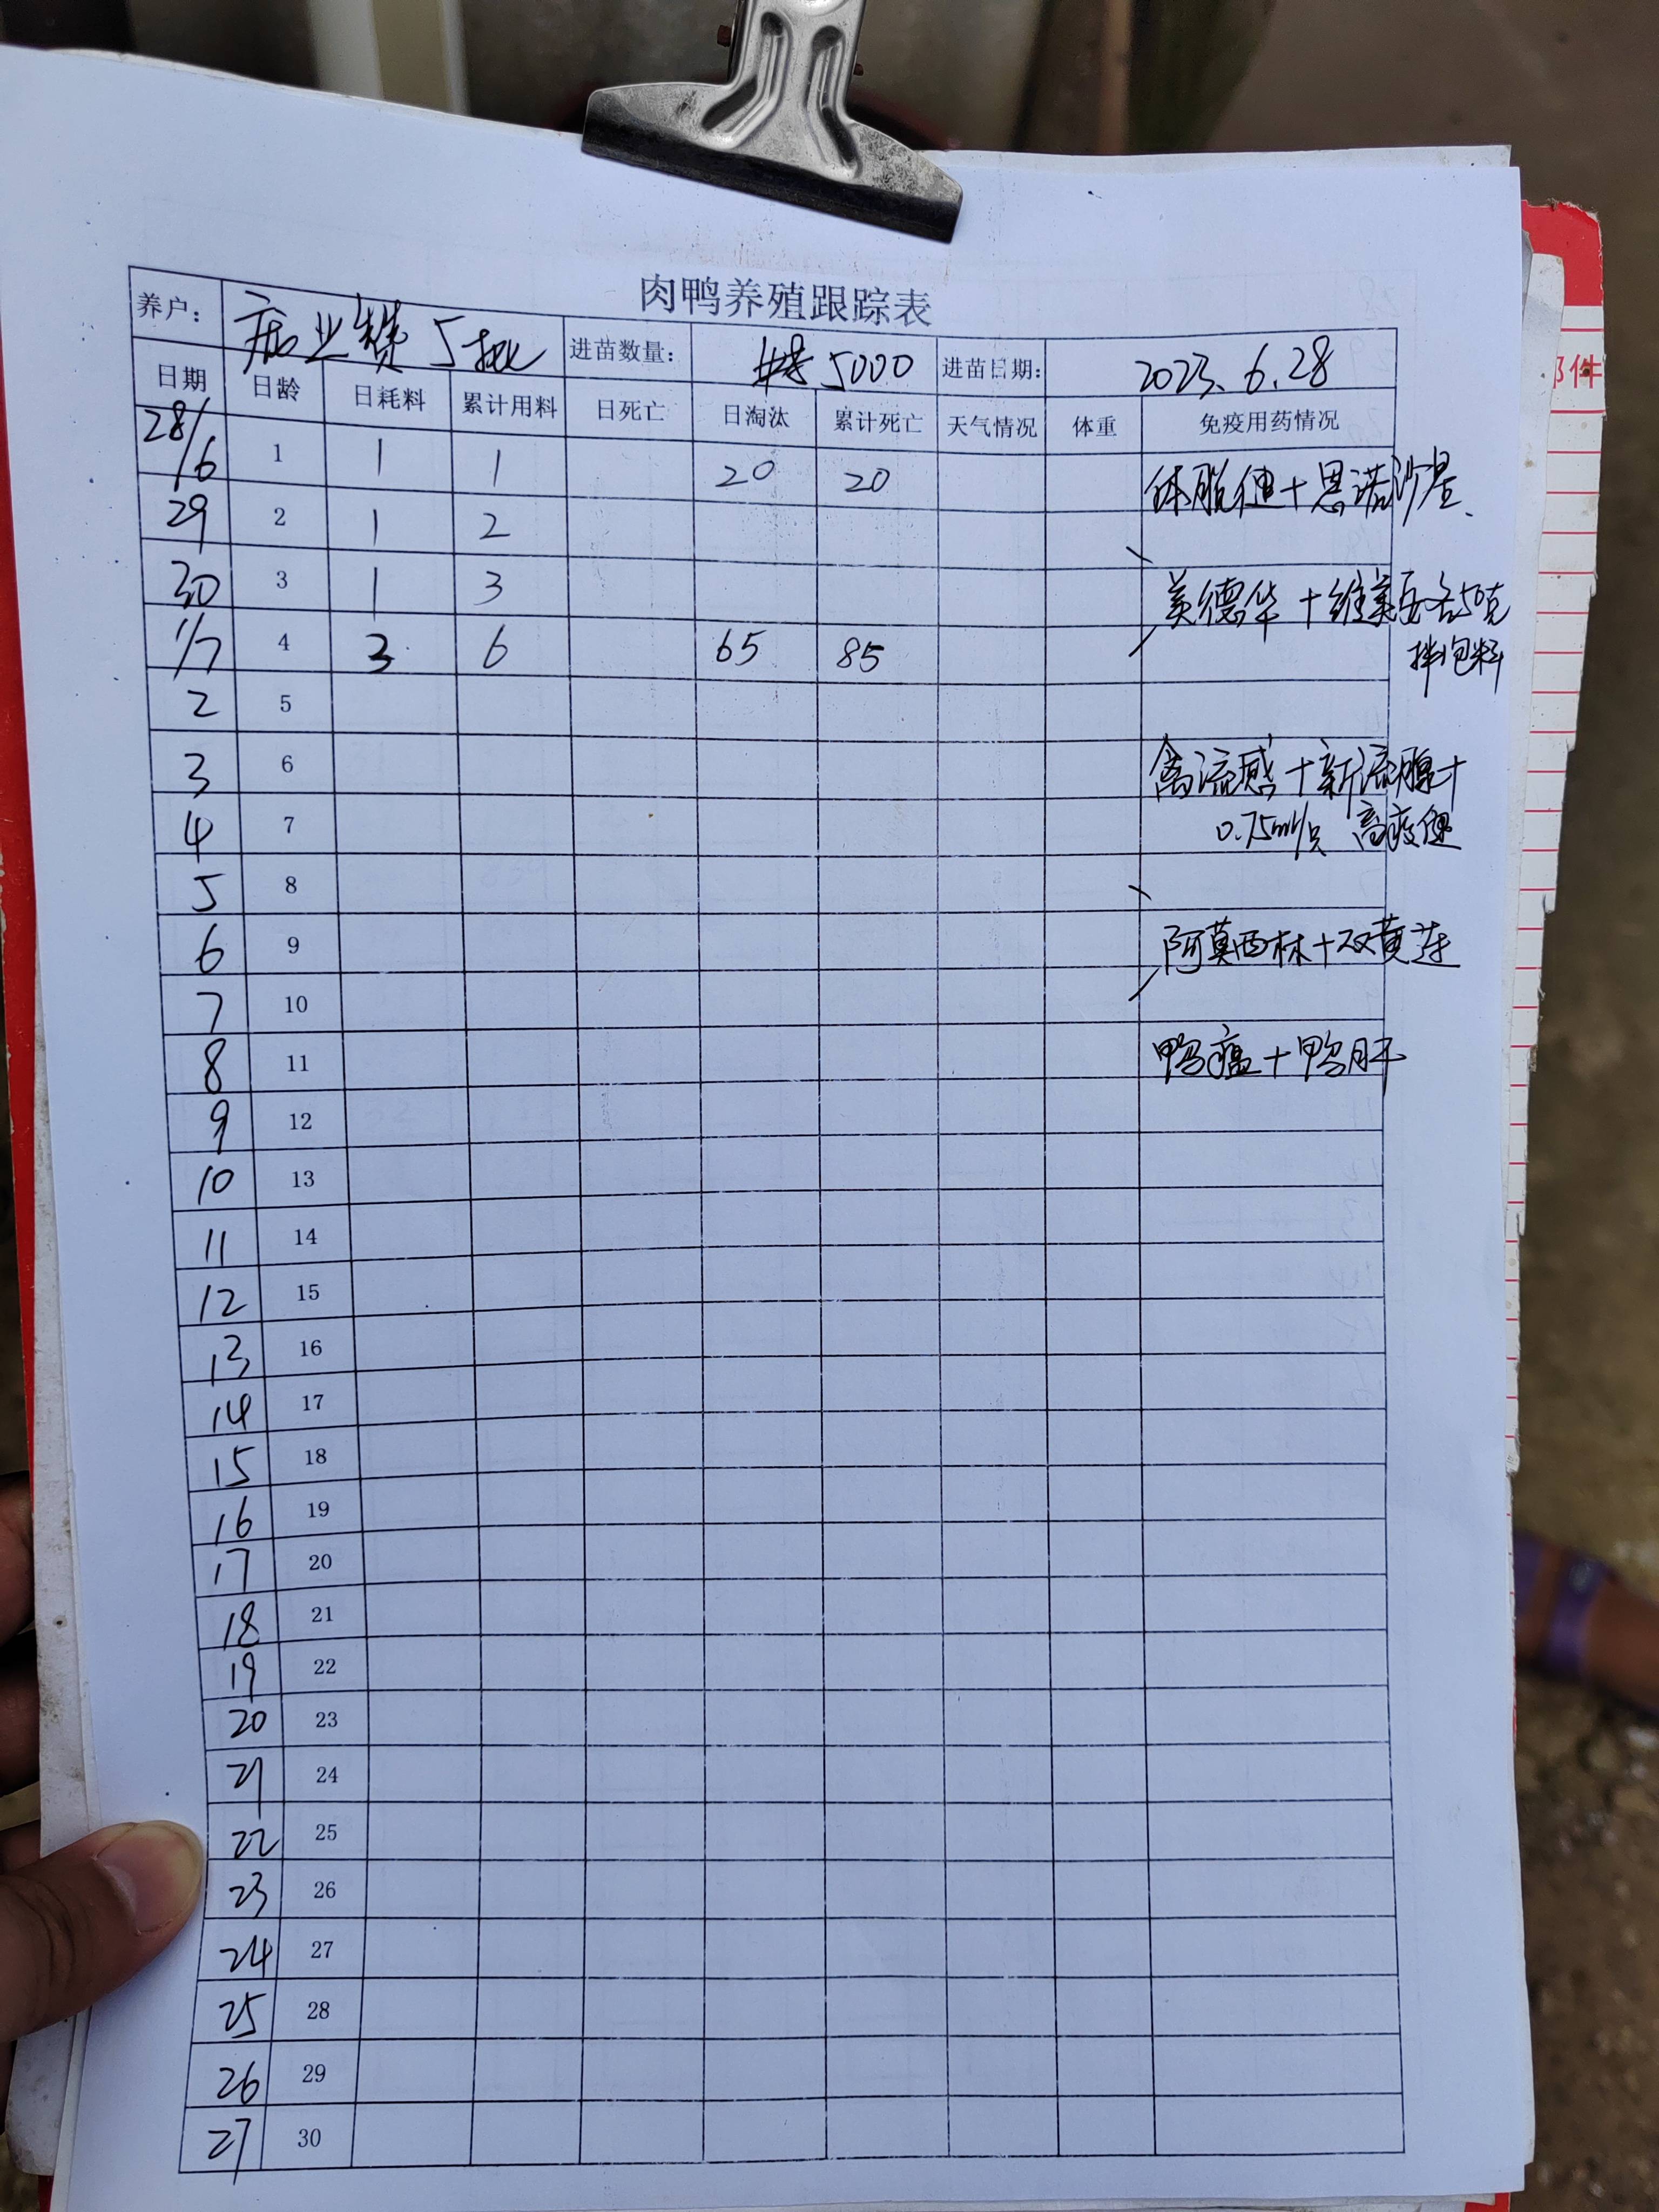 肉鸭养殖跟踪表
养户： 业赞 5批 进苗数量： 5000 进苗日期： 2023.6.28
日期 日龄 日耗料 累计用料 日死亡 日淘汰 累计死亡 天气情况 体重 免疫用药情况
28/6 1 1 1 20 20 体能健+恩诺沙星、
29 2 1 2
30 3 1 3 美德华+维 各50克
拌包料
1/7 4 3 6 65 85
2 5
3 6 禽流感+新流腺+
4 7 0.75ml/只 高疫健
5 8
6 9 阿莫西林+双黄连
7 10
8 11 鸭瘟+鸭肝
9 12
10 13
11 14
12 15
13 16
14 17
15 18
16 19
17 20
18 21
19 22
20 23
21 24
22 25
23 26
24 27
25 28
26 29
27 30
部件